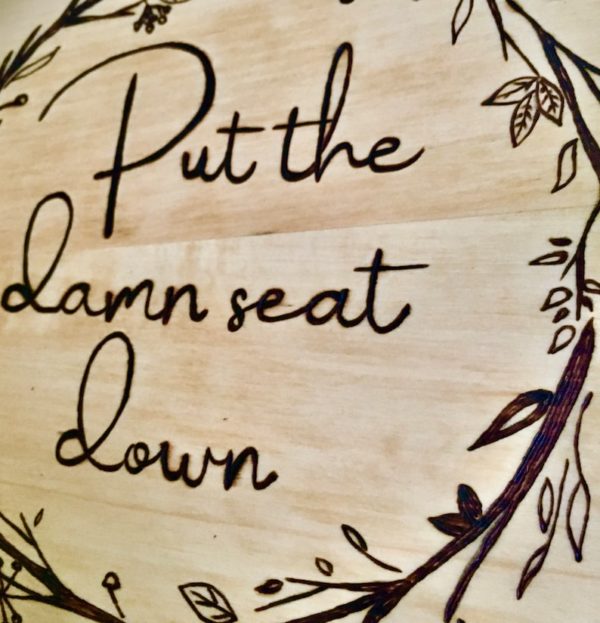 Put the
damn seat
down